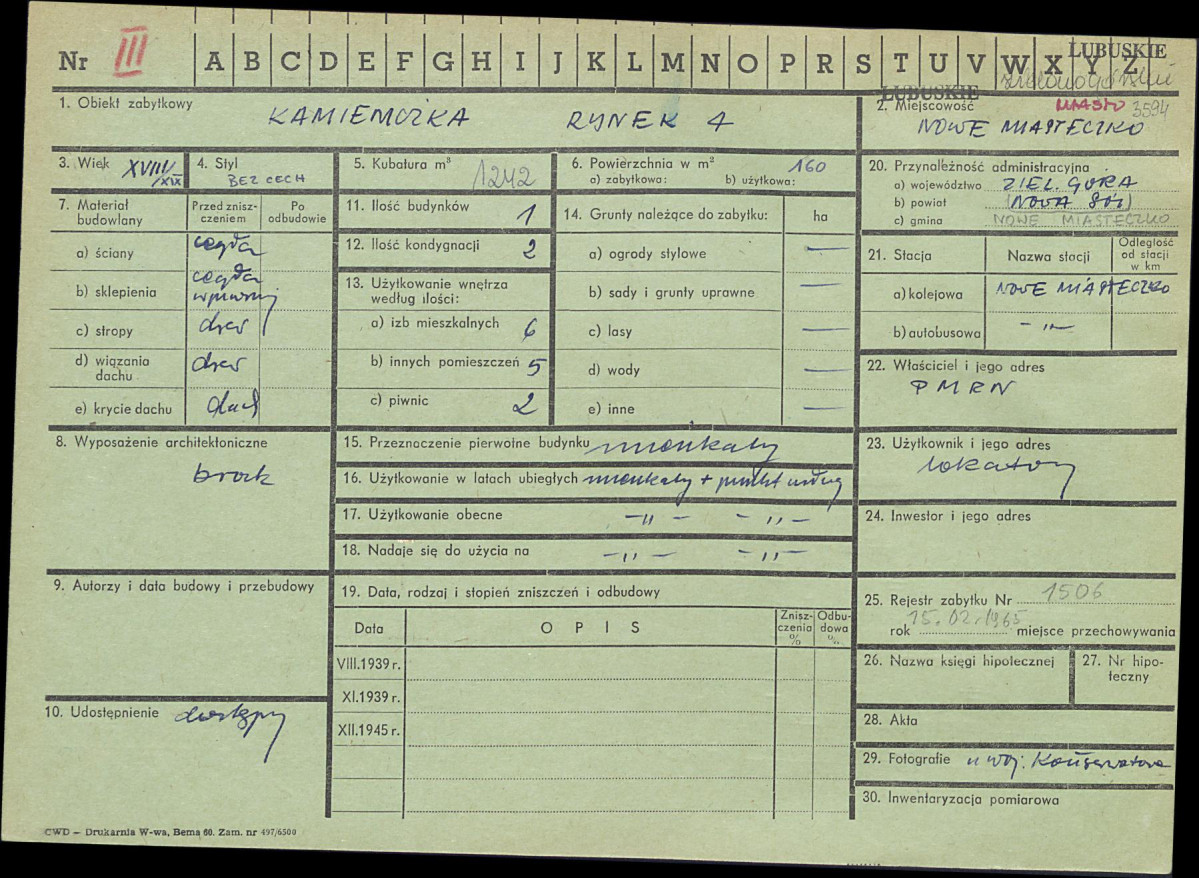 Nr III A B C D E F G H I J K L M N O P R S T U V W X Y Z LUBUSKIE
LUBUSKIE
1. Obiekt zabytkowy
KAMIENICZKA RYNEK 4
2. Miejscowość MIASTO 3594
NOWE MIASTECZKO
3. Wiek XVIII/XIX
4. Styl
BEZ CECH
5. Kubatura m³ 1242
6. Powierzchnia w m² 160
a) zabytkowa: b) użytkowa:
7. Materiał budowlany
Przed zniszczeniem
Po odbudowie
a) ściany cegła
b) sklepienia cegła
c) stropy drew
d) wiązania dachu drew
e) krycie dachu dach
8. Wyposażenie architektoniczne
brak
9. Autorzy i data budowy i przebudowy
10. Udostępnienie dostępny
11. Ilość budynków 1
12. Ilość kondygnacji 2
13. Użytkowanie wnętrza według ilości:
a) izb mieszkalnych 6
b) innych pomieszczeń 5
c) piwnic 2
14. Grunty należące do zabytku: ha
a) ogrody stylowe —
b) sady i grunty uprawne —
c) lasy —
d) wody —
e) inne —
15. Przeznaczenie pierwotne budynku mieszkalny
16. Użytkowanie w latach ubiegłych mieszkalny + punkt usług
17. Użytkowanie obecne -"- -"-
18. Nadaje się do użycia na -"- -"-
19. Data, rodzaj i stopień zniszczeń i odbudowy
Data OPIS Zniszczenia % Odbudowa %
VIII.1939 r.
XI.1939 r.
XII.1945 r.
20. Przynależność administracyjna
a) województwo ZIEL. GÓRA
b) powiat (NOWA SÓL)
c) gmina NOWE MIASTECZKO
21. Stacja Nazwa stacji Odległość od stacji w km
a) kolejowa NOWE MIASTECZKO
b) autobusowa -"-
22. Właściciel i jego adres
PMRN
23. Użytkownik i jego adres
lokatorzy
24. Inwestor i jego adres
25. Rejestr zabytku Nr 1506
rok 15.02.1965 miejsce przechowywania
26. Nazwa księgi hipotecznej
27. Nr hipoteczny
28. Akta
29. Fotografie u woj. Konserwatora
30. Inwentaryzacja pomiarowa
CWD — Drukarnia W-wa, Bema 60. Zam. nr 497/6500